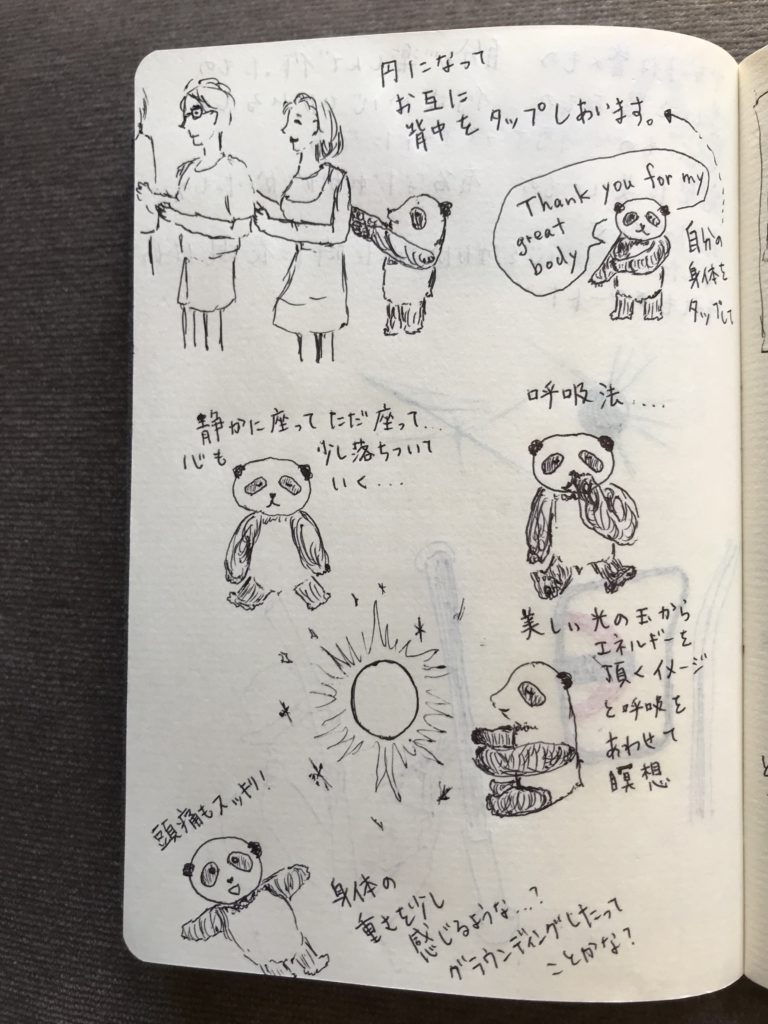 円になって
お互に
背中を タップしあいます。
Thank you for my
great
body
自分の
身体を
タップして
静かに座って ただ座って...
心も 少し落ちついて
いく...
呼吸法....
美しい光の玉から
エネルギーを
頂くイメージ
と呼吸を
あわせて
瞑想
頭痛もスッキリ!
身体の
重さを少し
感じるような...?
グラウンディングしたって
ことかな?